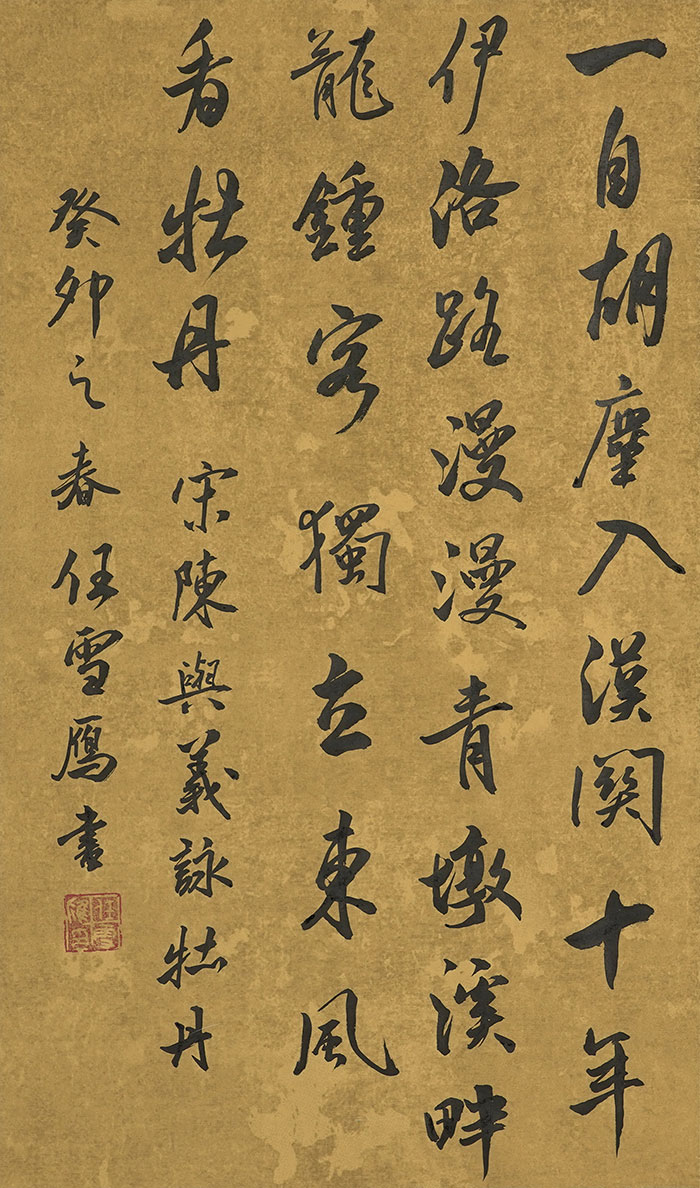 一自胡塵入漢關十年
伊洛路漫漫青墩溪畔
龍鍾客獨立東風
看牡丹 宋陳與義詠牡丹
癸卯之春任雪鴈書